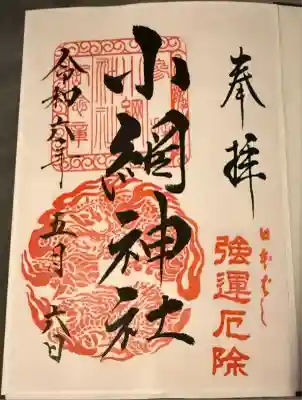 奉拝
日本ばし
強運厄除
小網神社
令和六年五月六日